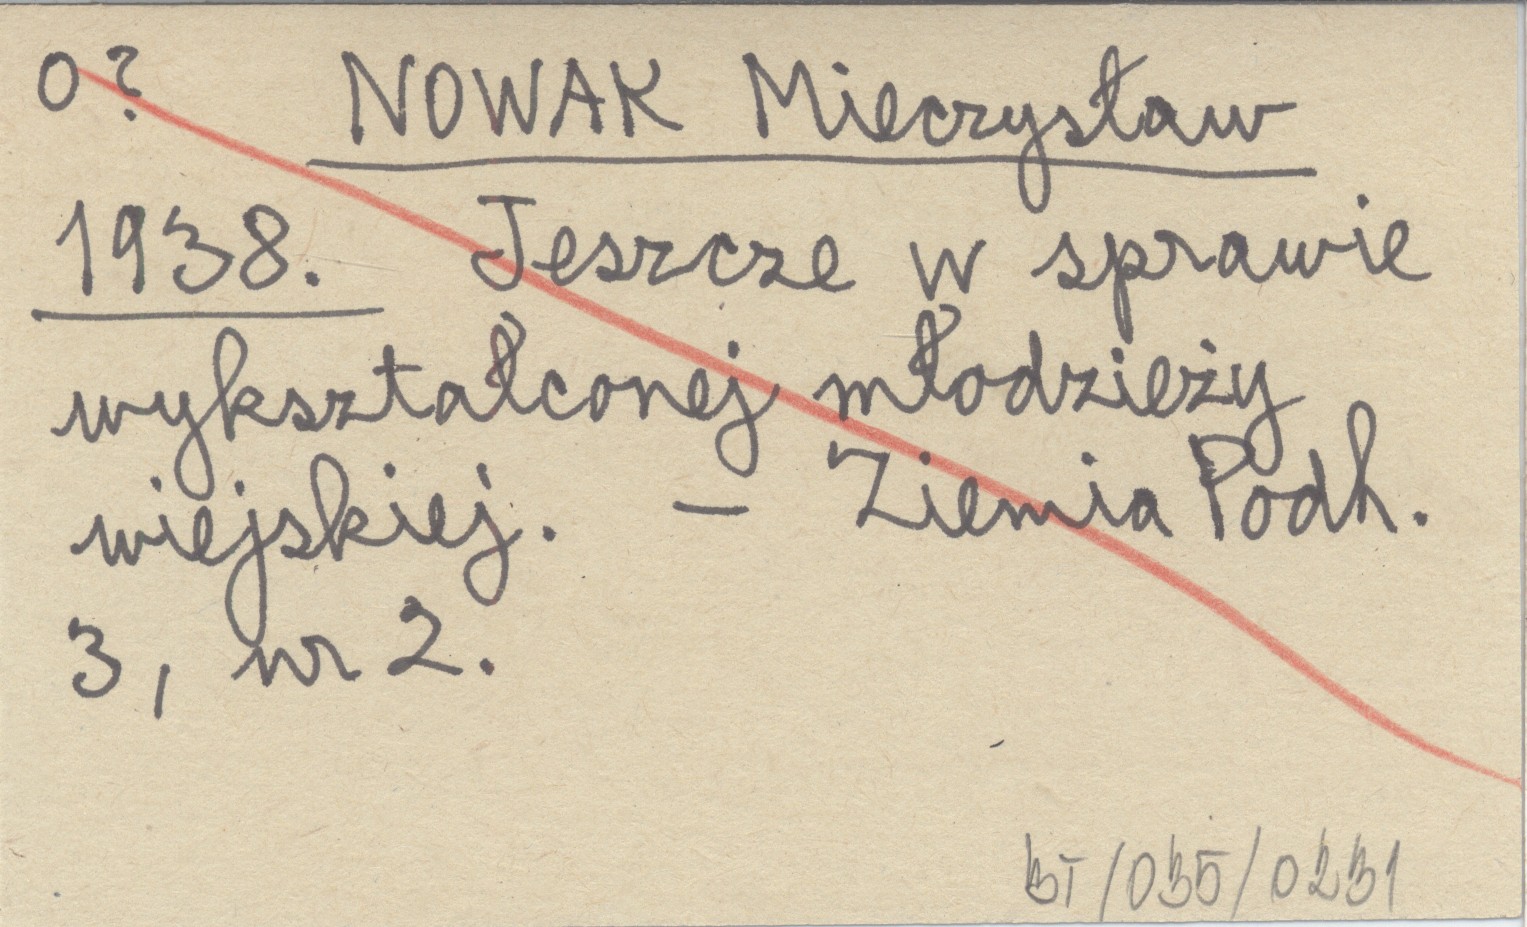 O? NOWAK Mieczysław
1938. Jeszcze w sprawie
wykształconej młodzieży
wiejskiej. – Ziemia Podh.
3, nr 2.
BT/035/0231